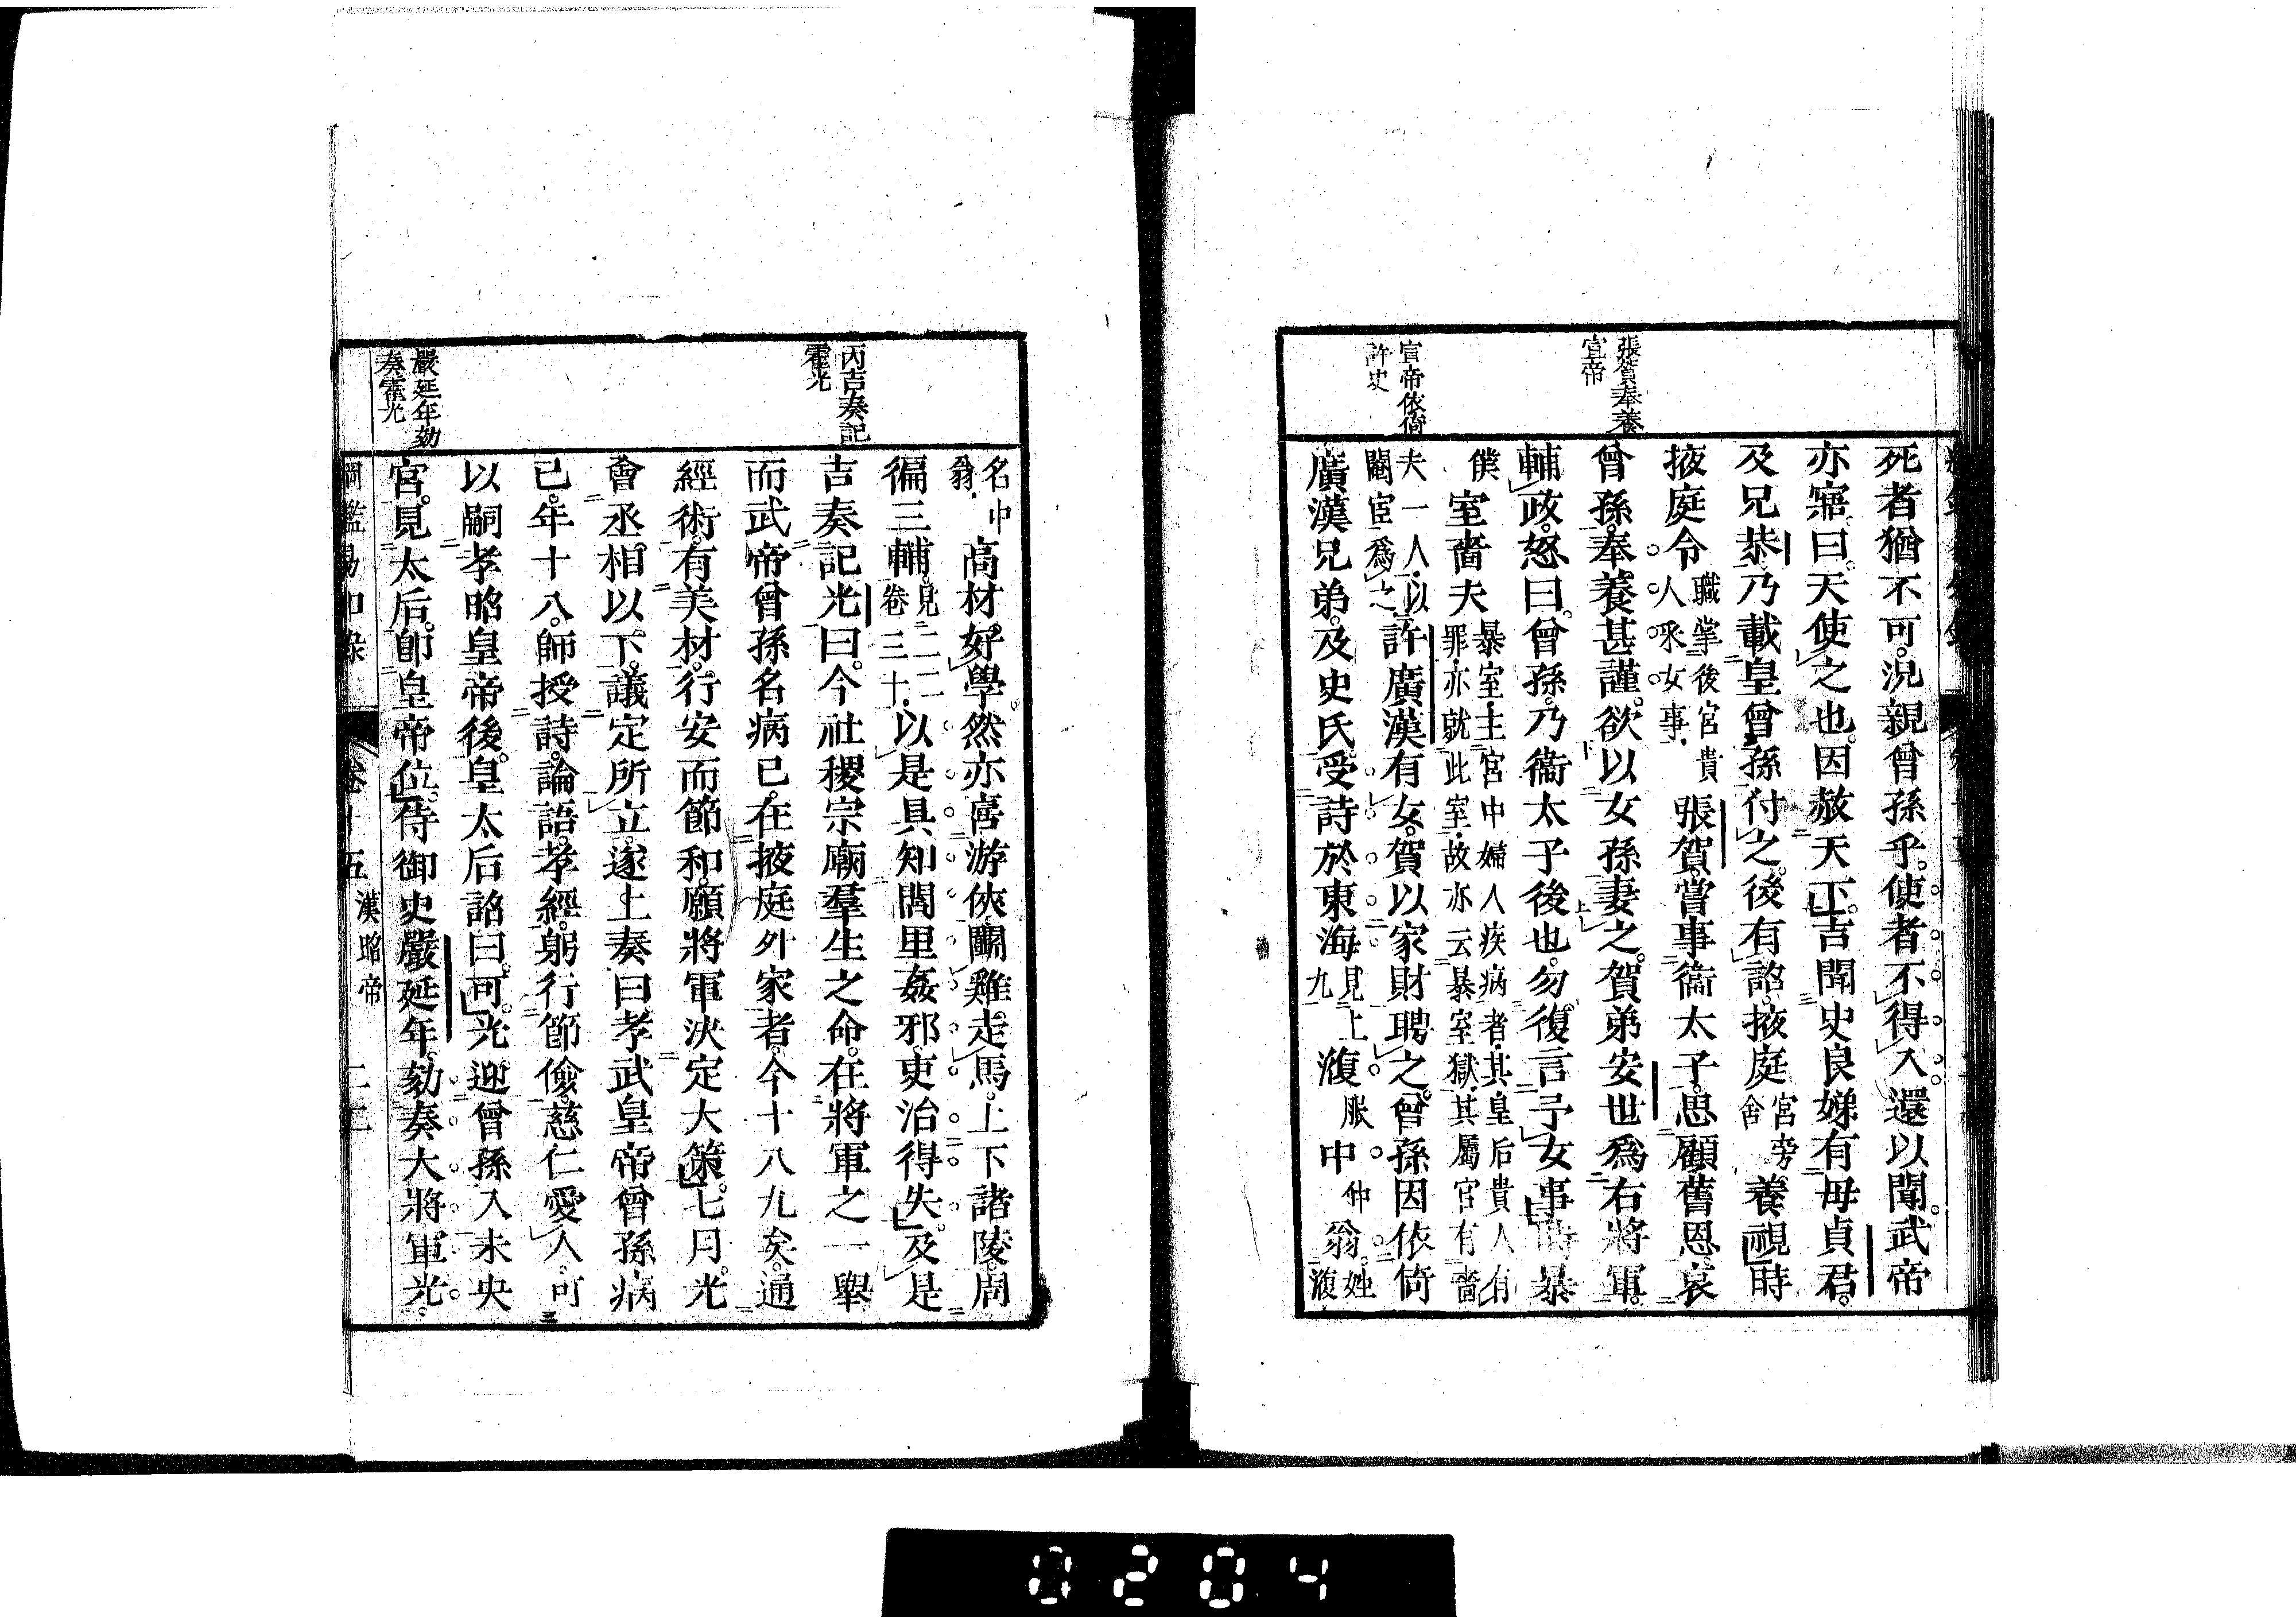 張賀奉養
宣帝
宣帝依倚
許史
死者猶不可。況親曾孫乎。使者不得入。還以聞。武帝
亦寤曰。天使之也。因赦天下。吉聞史良娣有母貞君。
及兄恭。乃載皇曾孫付之。後有詔。掖庭宮旁舍養視。時
掖庭令職掌後宮貴人采女事。張賀。嘗事衞太子。思顧舊恩。哀
曾孫。奉養甚謹。欲以女孫妻之。賀弟安世爲右將軍。
輔政。怒曰。曾孫。乃衞太子後也。勿復言予女事。時暴
室嗇夫暴室。主宮中婦人疾病者。其皇后貴人有罪。亦就此室。故亦云暴室獄。其屬官有嗇
夫一人。以閹宦爲之。許廣漢有女。賀以家財聘之。曾孫因依倚
廣漢兄弟。及史氏。受詩於東海見上九澓服中仲翁。姓澓
丙吉奏記
霍光
嚴延年劾
奏霍光
名中翁。高材。好學。然亦喜游俠。鬭雞。走馬。上下諸陵。周
徧三輔。以是具知閭里姦邪。吏治得失。及是
吉奏記光曰。今社稷宗廟羣生之命。在將軍之一舉
而武帝曾孫名病已。在掖庭外家者。今十八九矣。通
經術。有美材。行安而節和。願將軍決定大策。七月。光
會丞相以下。議定所立。遂上奏曰。孝武皇帝曾孫病
已。年十八。師授詩。論語。孝經。躬行節儉。慈仁愛人。可
以嗣孝昭皇帝後。皇太后詔曰。可。光迎曾孫入未央
宮。見太后。卽皇帝位。侍御史嚴延年。劾奏大將軍光。
綱鑑易知錄 卷十五 漢昭帝 二三
0204